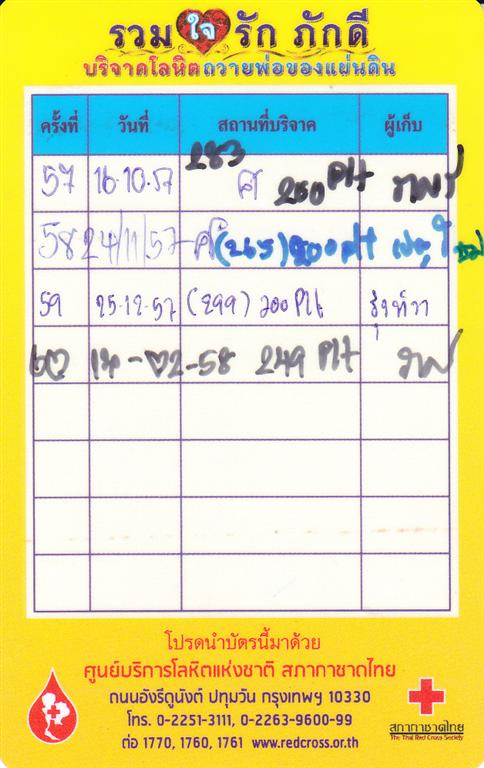 รวม ใจ รัก ภักดี
บริจาคโลหิตถวายพ่อของแผ่นดิน
ครั้งที่ วันที่ สถานที่บริจาค ผู้เก็บ
283
57 16-10-57 ศ 200 Plt
58 24/11/57 ศ (265) 200 plt
59 25-12-57 (299) 200 Plt รุ่งทิวา
60 14-02-58 249 Plt
โปรดนำบัตรนี้มาด้วย
ศูนย์บริการโลหิตแห่งชาติ สภากาชาดไทย
ถนนอังรีดูนังต์ ปทุมวัน กรุงเทพฯ 10330
โทร. 0-2251-3111, 0-2263-9600-99
ต่อ 1770, 1760, 1761 www.redcross.or.th
สภากาชาดไทย
The Thai Red Cross Society